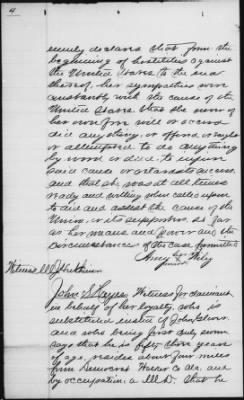 emnly declares that from the
beginning of hostilities against
the United States to the end
thereof, her sympathies were
constantly with the cause of the
United States that she never of
her own free will or accord
did anything, or offered, or sought
or attempted to do anything
by word or deed, to injure
said cause or retard its success,
and that she was at all times
ready and willing when called upon
to aid and assist the cause of the
Union, or its supporters, so far
as her means and power and the
circumstances of the case permitted
Amy her
mark
Witness
John S Hayes Witness for claimant
in behalf of her loyalty, who is
substituted instead of John
and who being first duly sworn
says that he is fifty three years
of age, resides about four miles
from Co Ala, and
by occupation, a M.D. that he